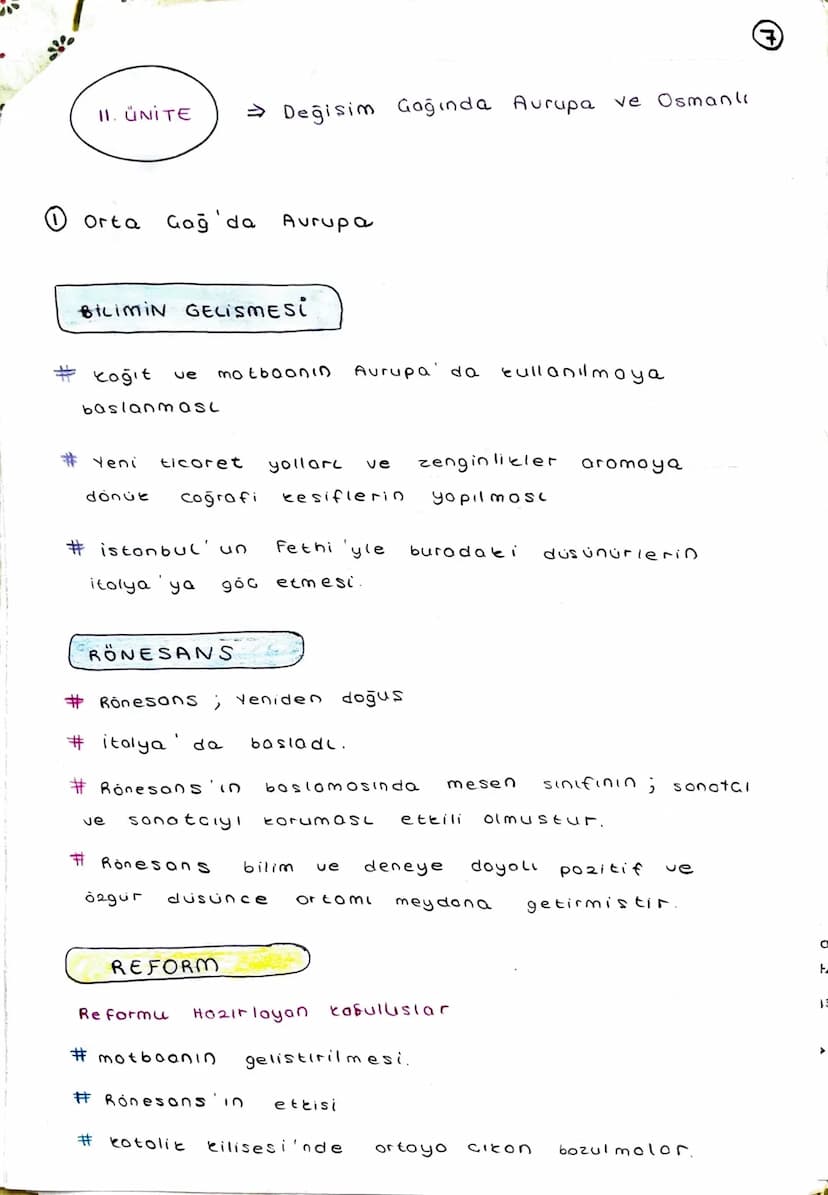 7
II. ÜNİTE ⇒ Değisim Cağında Avrupa ve Osmanlı
① Orta Cağ'da Avrupa
BİLİMİN GELİSMESİ
# kağıt ve matbaanın Avrupa'da kullanılmaya
baslanması
# Yeni ticaret yolları ve zenginlikler aramaya
dönük coğrafi kesiflerin yapılması
# istanbul'un Fethi'yle buradaki düsünürlerin
italya'ya göc etmesi.
RÖNESANS
# Rönesans ; Yeniden doğus
# italya'da basladı.
# Rönesans'ın baslamasında mesen sınıfının ; sanatcı
ve sanatcıyı koruması etkili olmustur.
# Rönesans bilim ve deneye dayalı pozitif ve
özgür düsünce ortamı meydana getirmistir.
REFORM
Reformu Hazırlayan
# matbaanın gelistirilmesi.
# Rönesans'ın etkisi
# katolik kilisesi'nde ortaya cıkan bozulmalar.